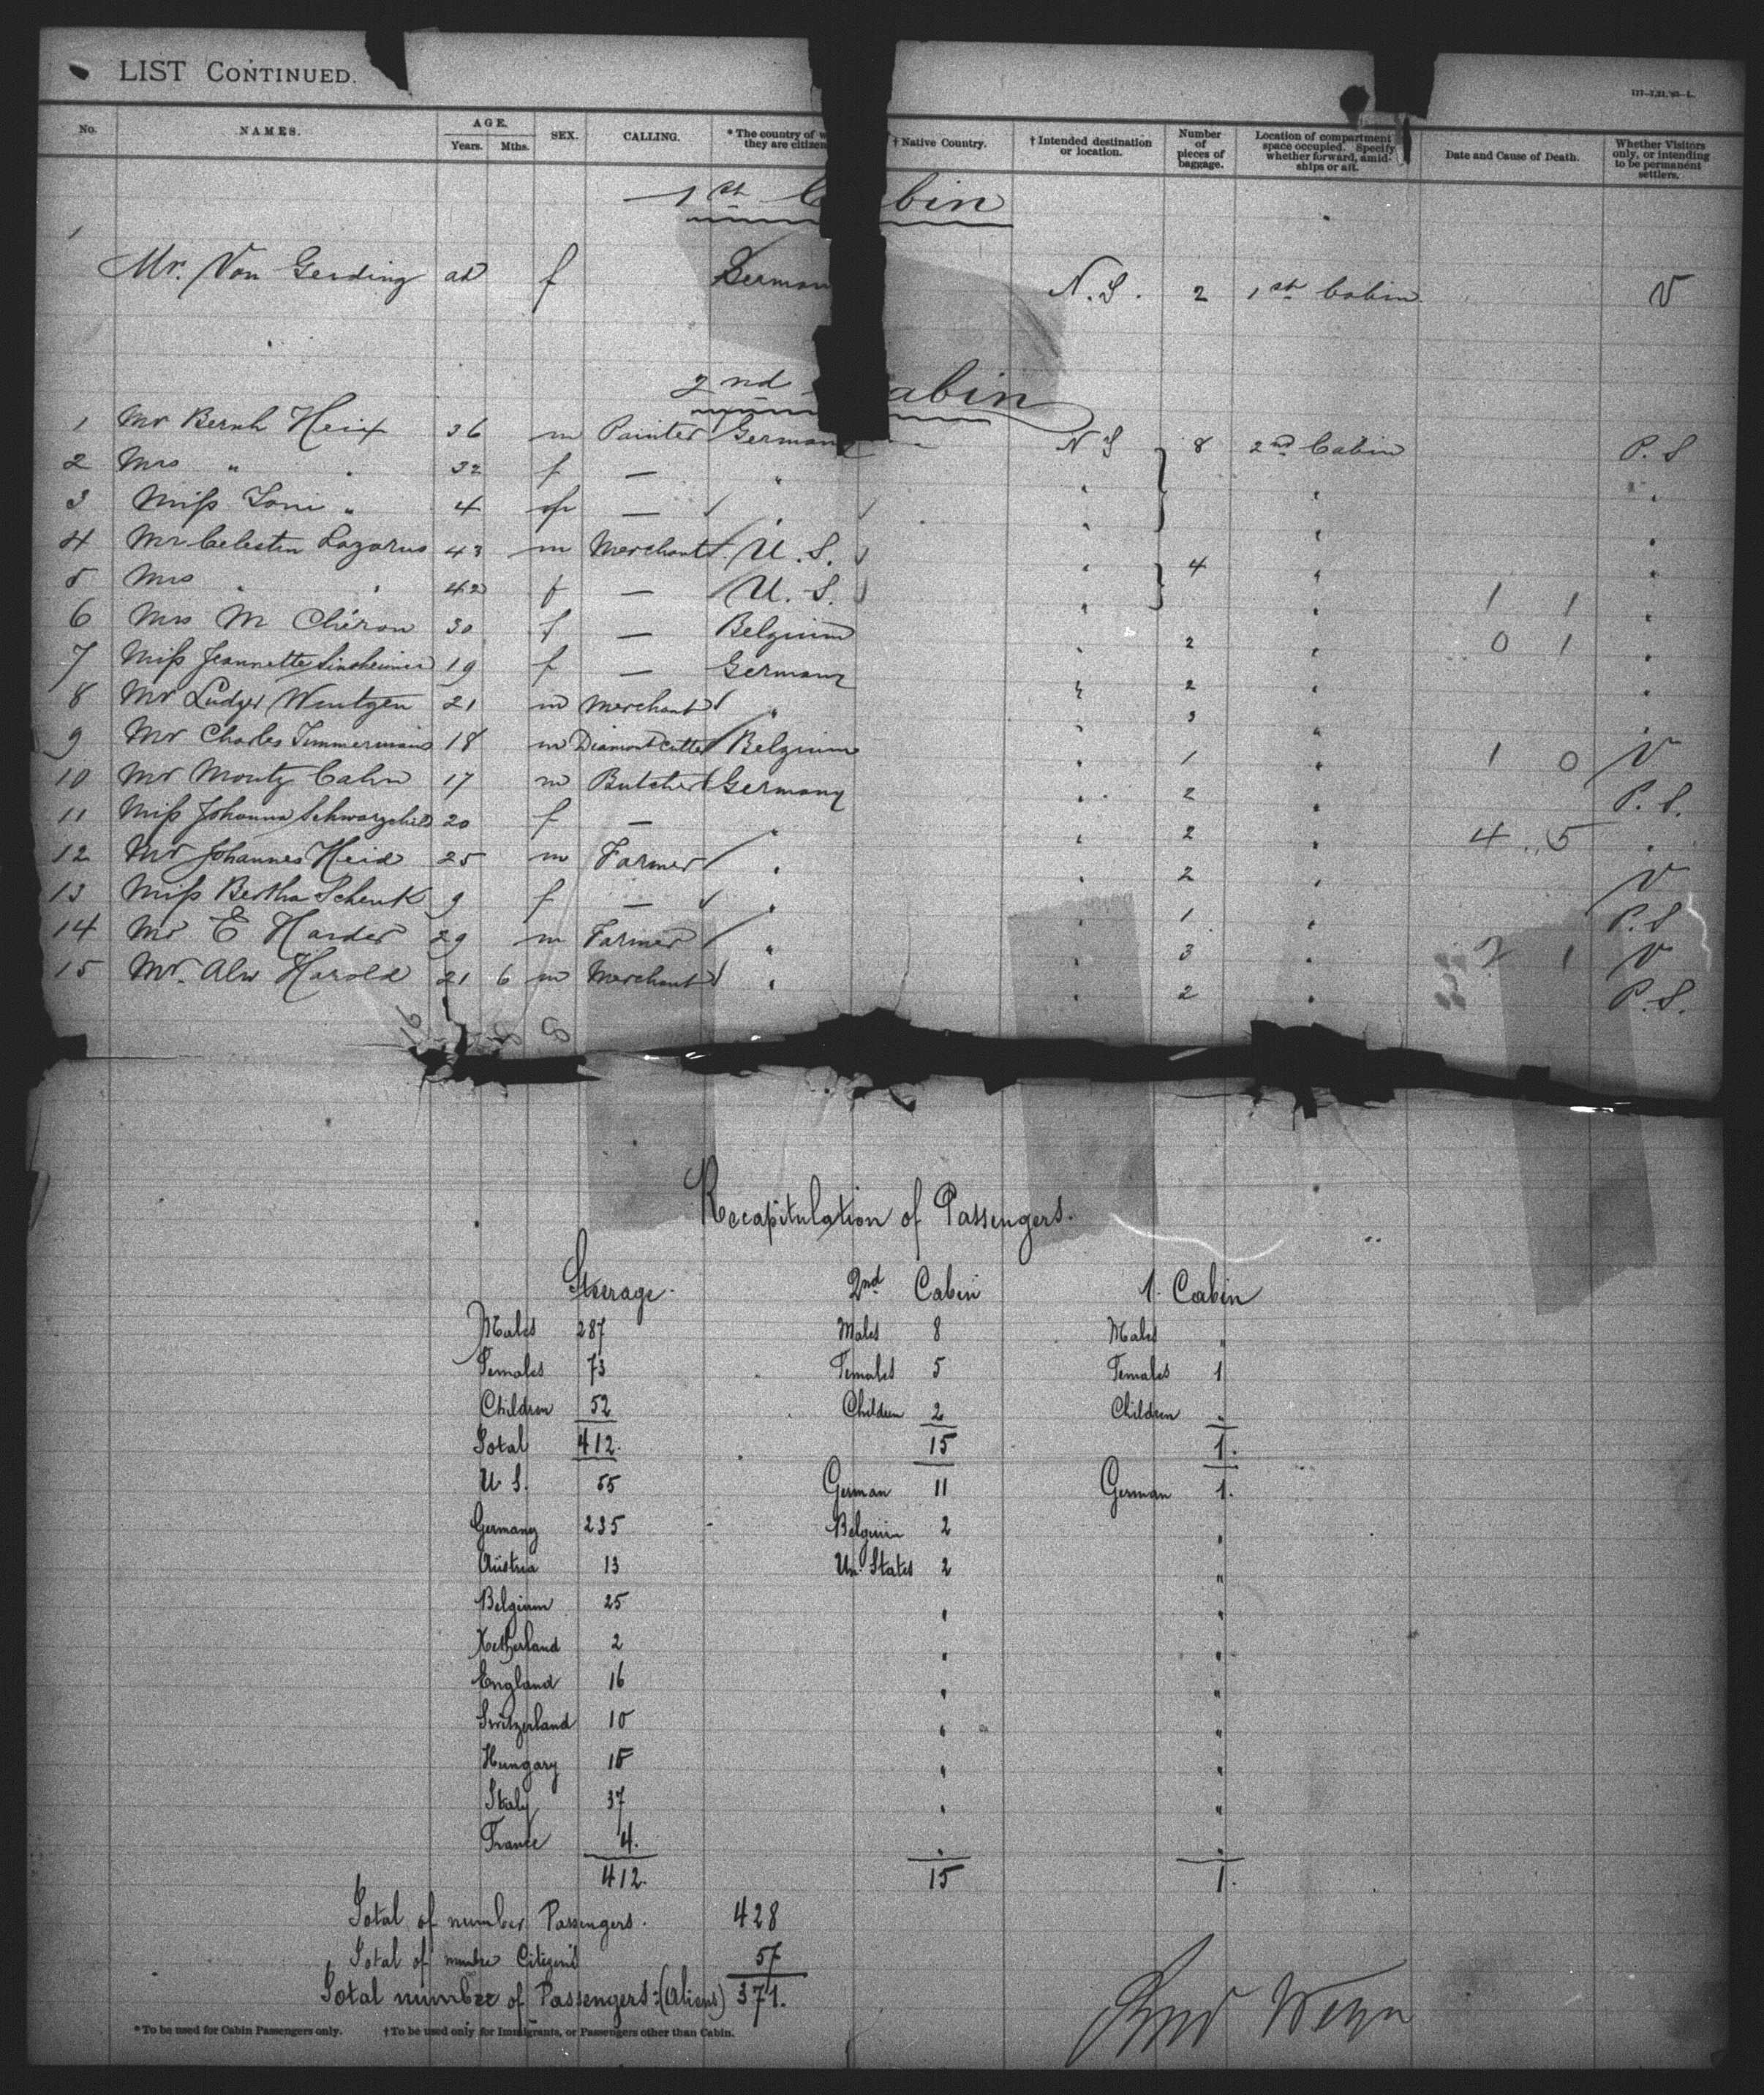 LIST CONTINUED.
No. NAMES. AGE. Years. Mths. SEX. CALLING. * The country of w they are citizen † Native Country. † Intended destination or location. Number of pieces of baggage. Location of compartment space occupied. Specify whether forward, amidships or aft. Date and Cause of Death. Whether Visitors only, or intending to be permanent settlers.
1st C bin
1 Mr. Von Gerding ad f German N.S. 2 1st Cabin V
2nd abin
1 Mr Bernh Heix 36 m Painter Germany N S } 8 2nd Cabin P. S
2 Mrs " " 32 f — "
3 Miss Toni " 4 f — "
4 Mr Celestin Lazarus 43 m Merchant U. S. } 4 "
5 Mrs " " 42 f — U. S. " 1 1 "
6 Mrs M Chéron 30 f — Belgium " 2 " 0 1 "
7 Miss Jeannette Sinsheimer 19 f — Germany " 2 " "
8 Mr Ludger Wentzen 21 m Merchant " " 3 " "
9 Mr Charles Timmermans 18 m Diamont cutter Belgium " 1 " 1 0 V
10 Mr Moritz Cahn 17 m Butcher Germany " 2 " P. S.
11 Miss Johanna Schwarzchild 20 f — " " 2 " 4 5 "
12 Mr Johannes Heid 25 m Farmer " " 2 " V
13 Miss Bertha Schenk 9 f — " " 1 " P. S
14 Mr E Harder 29 m Farmer " " 3 " 2 1 V
15 Mr. Alw Harold 21 6 m Merchant " " 2 " P. S.
Recapitulation of Passengers.
Steerage. 2nd Cabin 1. Cabin
Males 287 Males 8 Males "
Females 73 Females 5 Females 1
Children 52 Children 2 Children "
Total 412. 15 1.
U. S. 55 German 11 German 1.
Germany 235 Belguim 2 "
Austria 13 Un. States 2 "
Belgium 25 " "
Netherland 2 " "
England 16 " "
Switzerland 10 " "
Hungary 15 " "
Italy 37 " "
France 4. " "
412. 15 1.
Total of number Passengers. 428
Total of numbre Citizens 57
Total number of Passengers: (Aliens) 371.
*To be used for Cabin Passengers only. †To be used only for Immigrants, or Passengers other than Cabin.